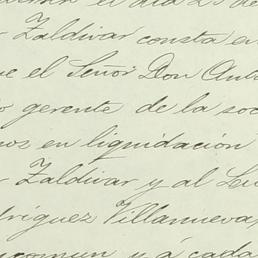 el dia 23 de
Zaldivar consta en
el Señor Don Anto
gerente de la soc
en liquidación
Zaldivar y al Se
Villanueva,
comun y á cada